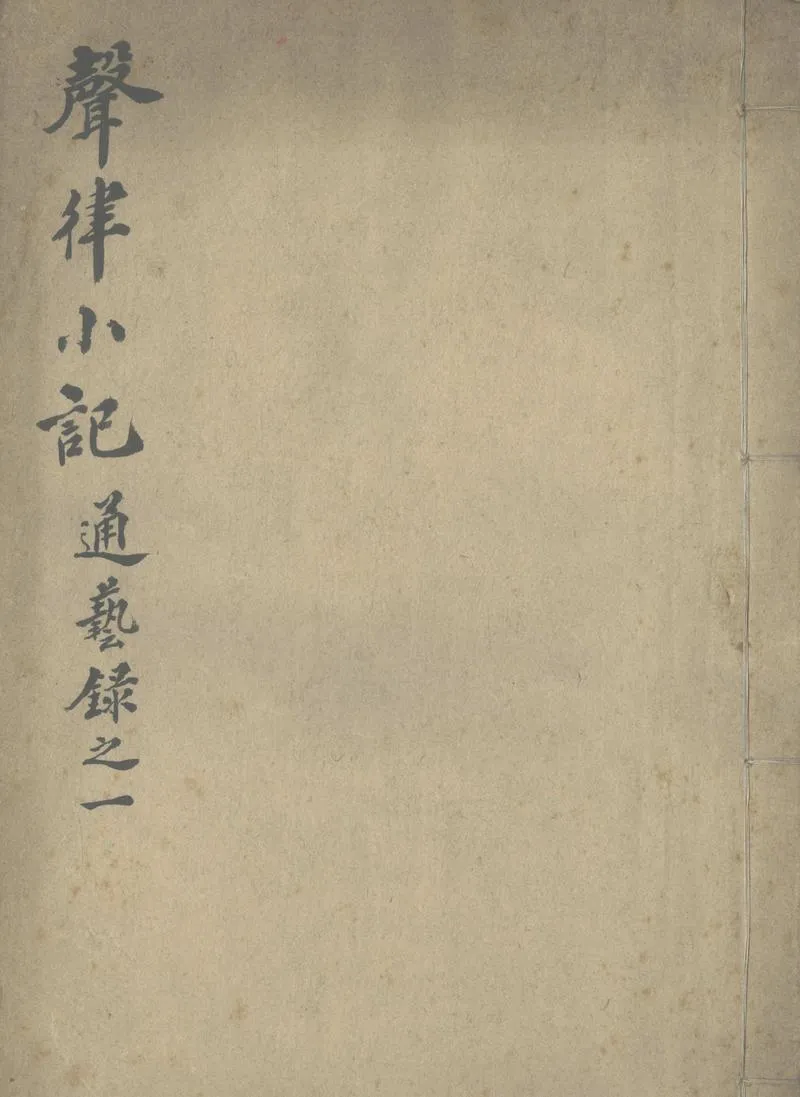 聲律小記通藝録之一